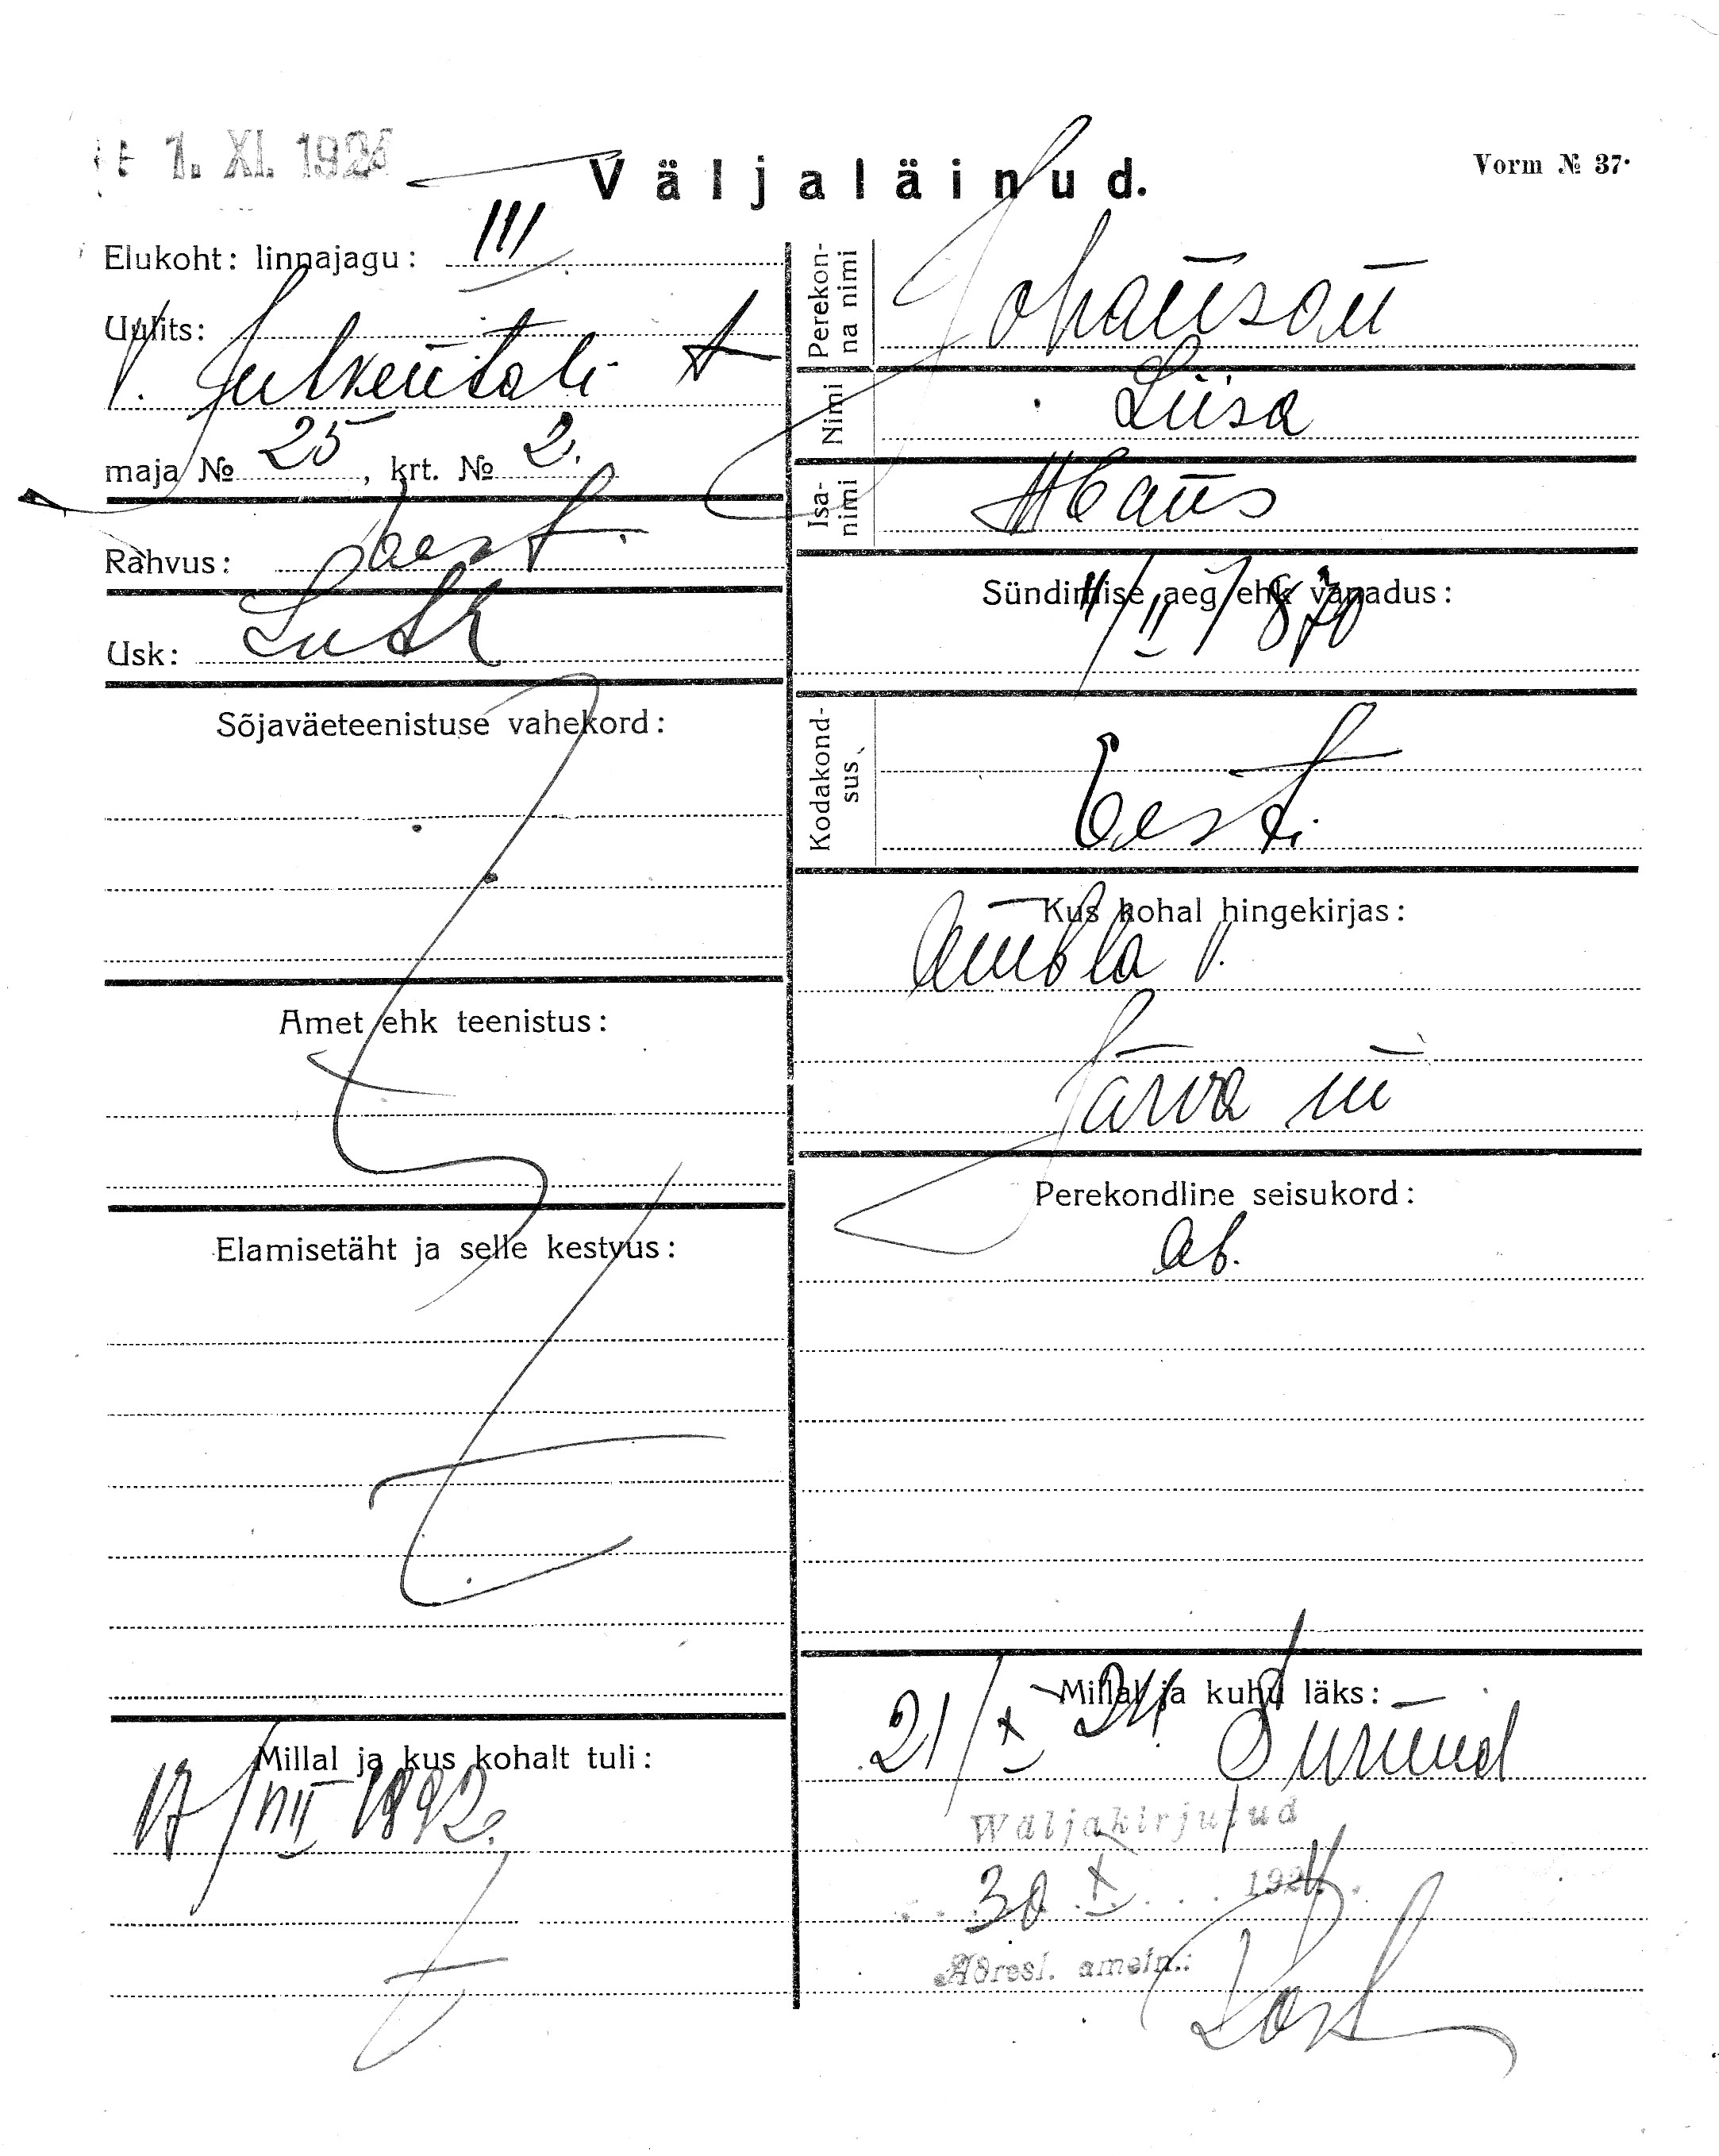 1. XI. 192
Väljaläinud.
Vorm № 37.
Elukoht: linnajagu: III
Uulits:
V. Juhkentali t
maja № 25, krt. № 2.
Rahvus: eest.
Usk: Luth
Sõjaväeteenistuse vahekord:
Amet ehk teenistus:
Elamisetäht ja selle kestvus:
Millal ja kus kohalt tuli:
17/VII 1892.
Perekon-
na nimi
Johanson
Nimi
Liisa
Isa-
nimi
Hans
Sündimise aeg ehk vanadus:
11/II 1870
Kodakond-
sus
Eesti
Kus kohal hingekirjas:
Ambla v.
Järva m
Perekondline seisukord:
ab.
Millal ja kuhu läks:
21/X 24. Surnud
Wäljakirjutud
30 X 1924.
Adresl. ametn.: